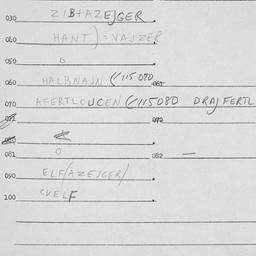 030 ZIB+AZEJGER
040 HANT)=VAJZER
050 0
060 HALBNAJN (/115070 065
070 AFERTLOUCEN (/115080 DRAJFERTL
071 072
081 0 082 —
090 ELF/AZEJGER/
100 CVELF